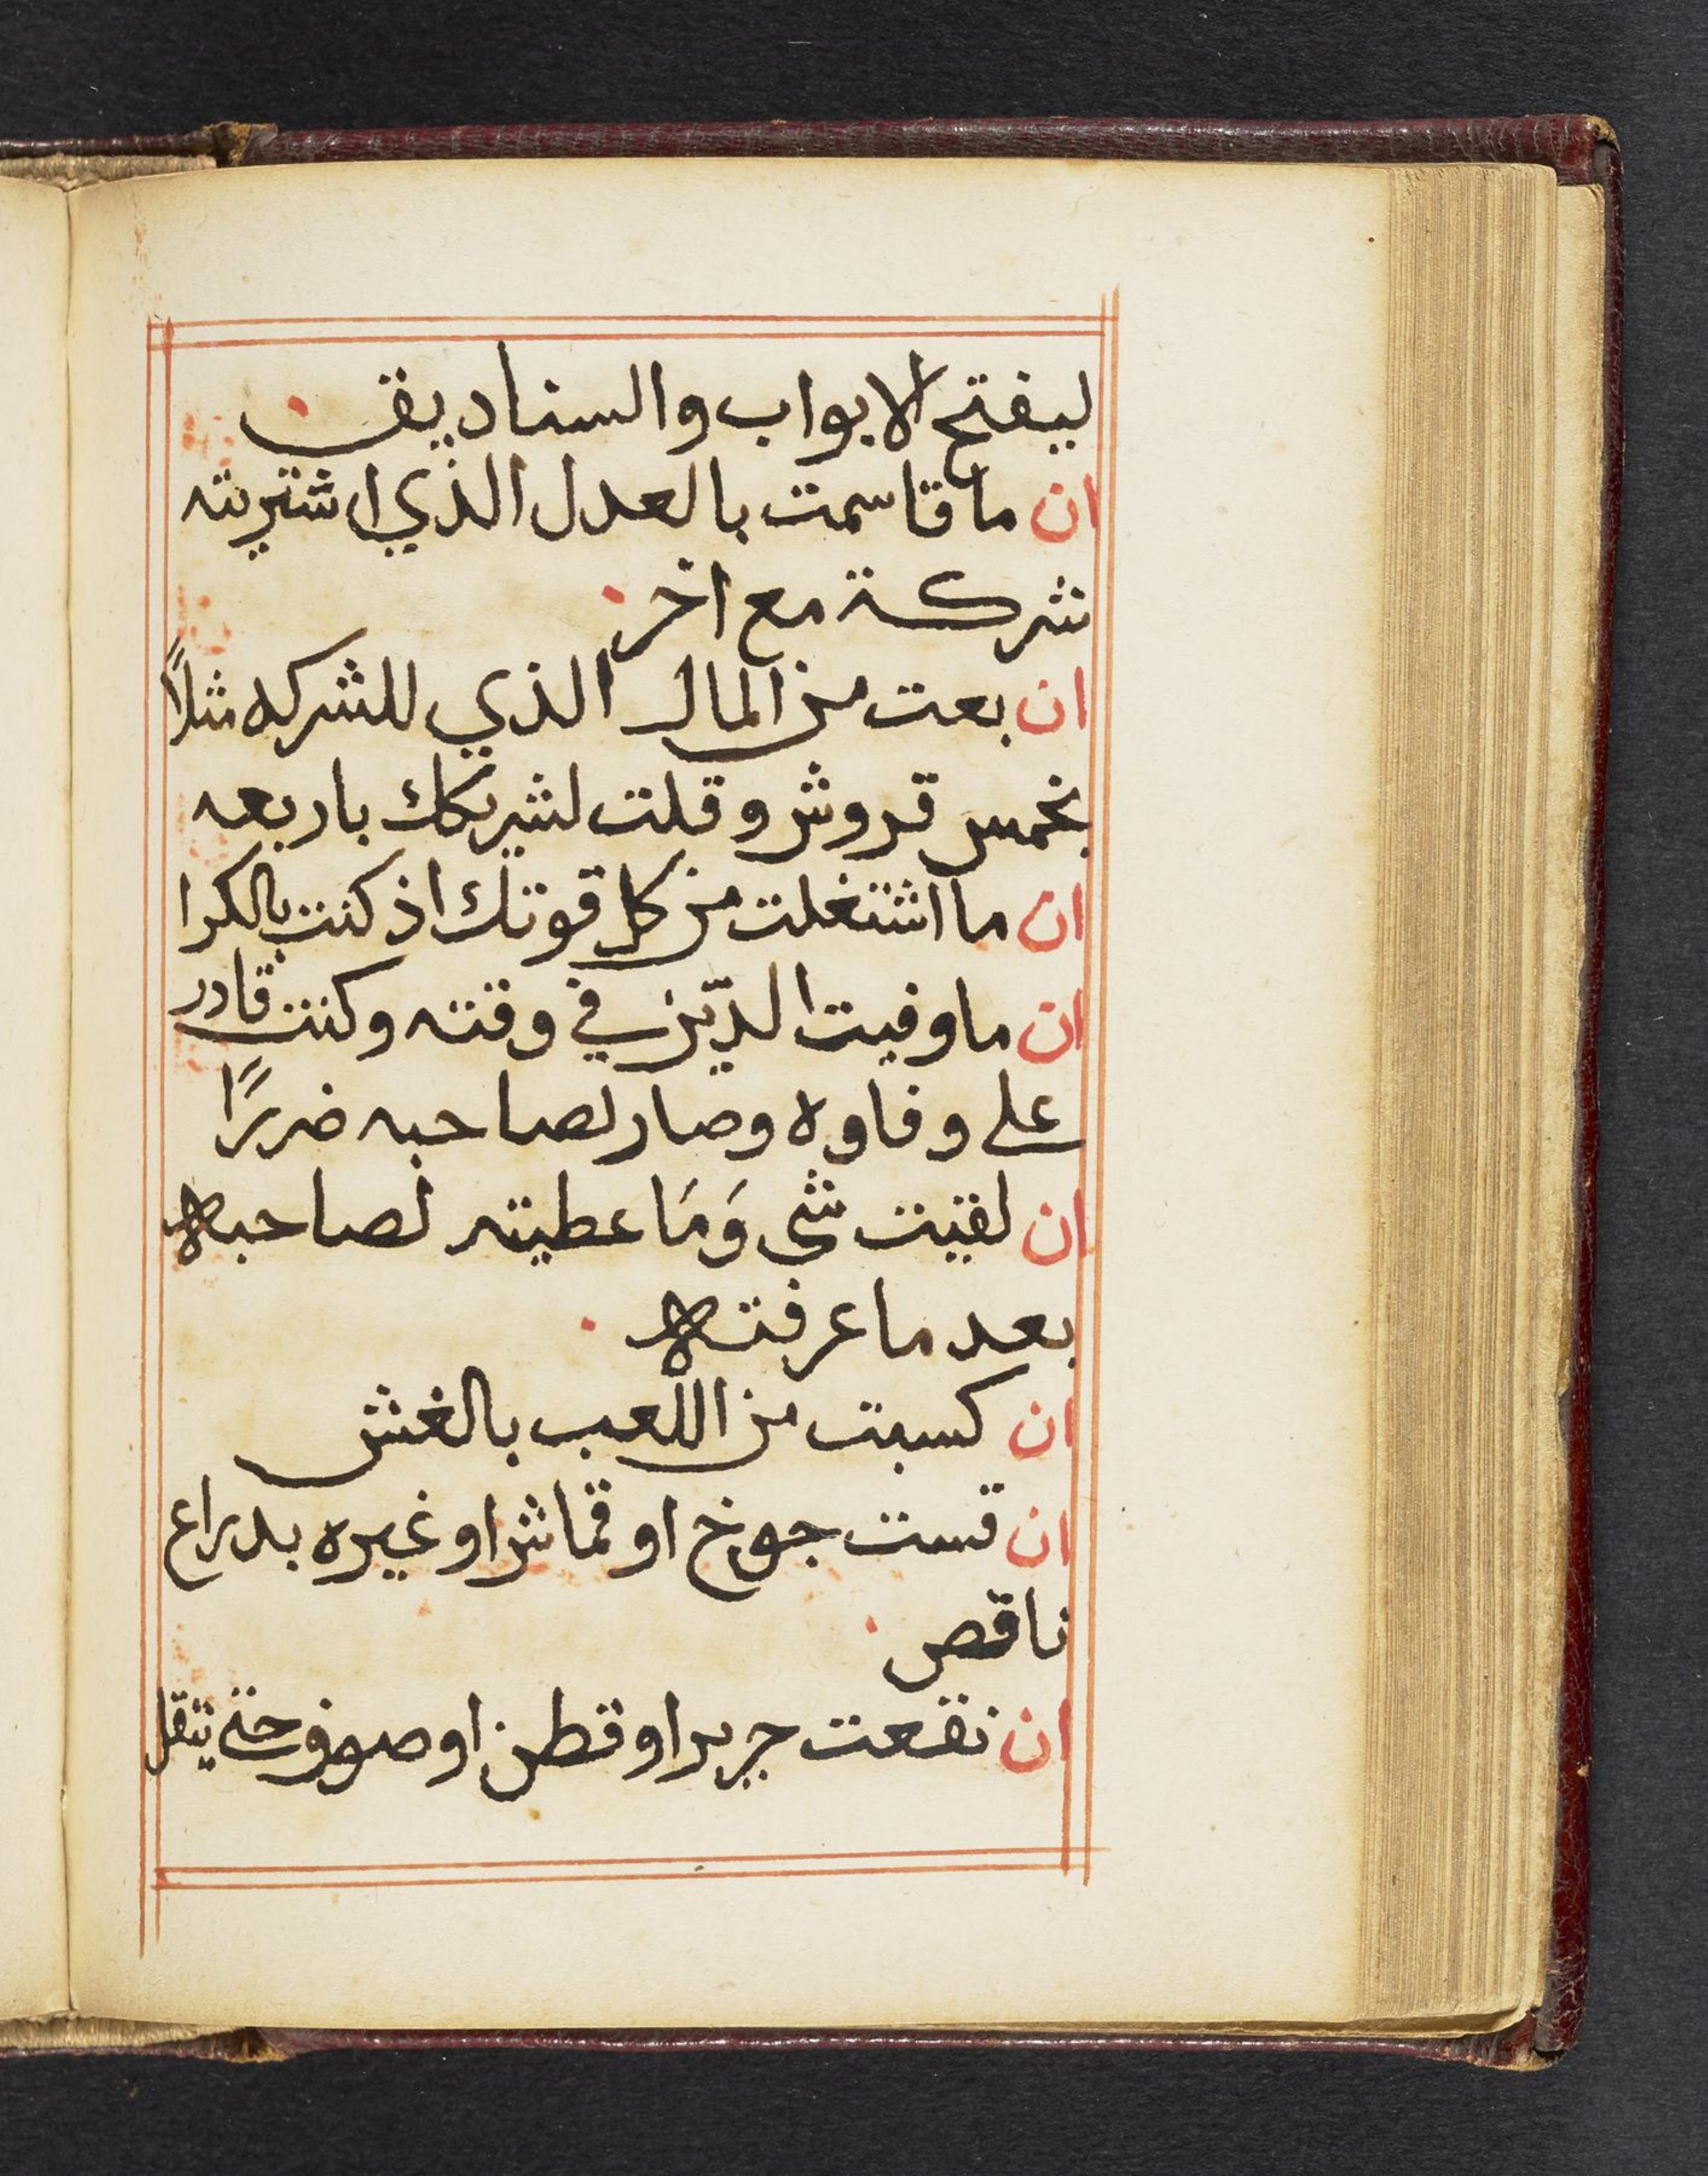 ليفتح الابواب والسناديق
ان ما قاسمت بالعدل الذي اشتريته
شركة مع اخر
ان بعت من المال الذي للشركه مثلاً
بخمس قروش وقلت لشريكك باربعه
ان ما اشتغلت من كل قوتك اذ كنت بالكرا
ان ما وفيت الدّين في وقته وكنت قادر
على وفاوه وصار لصاحبه ضررًا
ان لقيت شي وَمَا عطيته لصاحبه
بعد ما عرفته
ان كسبت من اللعب بالغش
ان قست جوخ او قماش او غيره بدراع
ناقص
ان نقعت حرير او قطن او صوف حتى يتقل